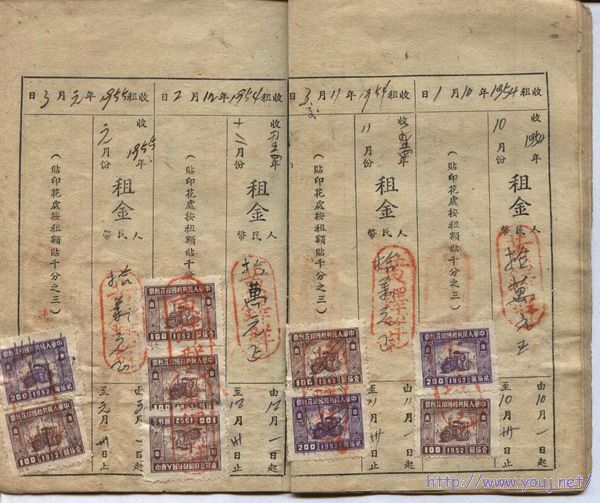 收租1954年10月1日
收1954年
10月份
租金
人民幣
拾萬元正
(貼印花處按租額貼千分之三)
由10月1日起
至10月卅日止
收租1954年11月3日
收五四年
11月份
租金
人民幣
拾萬元正
(貼印花處按租額貼千分之三)
由11月1日起
至11月卅日止
收租1954年12月2日
收五四年
十二月份
租金
人民幣
拾萬元正
(貼印花處按租額貼千分之三)
由12月1日起
至12月卅日止
收租1955年元月3日
收1955年
元月份
租金
人民幣
拾萬元正
(貼印花處按租額貼千分之三)
至元月卅日止
中華人民共和國印花稅票
200 1952
中華人民共和國印花稅票
100 1952
http://www.youj.net/